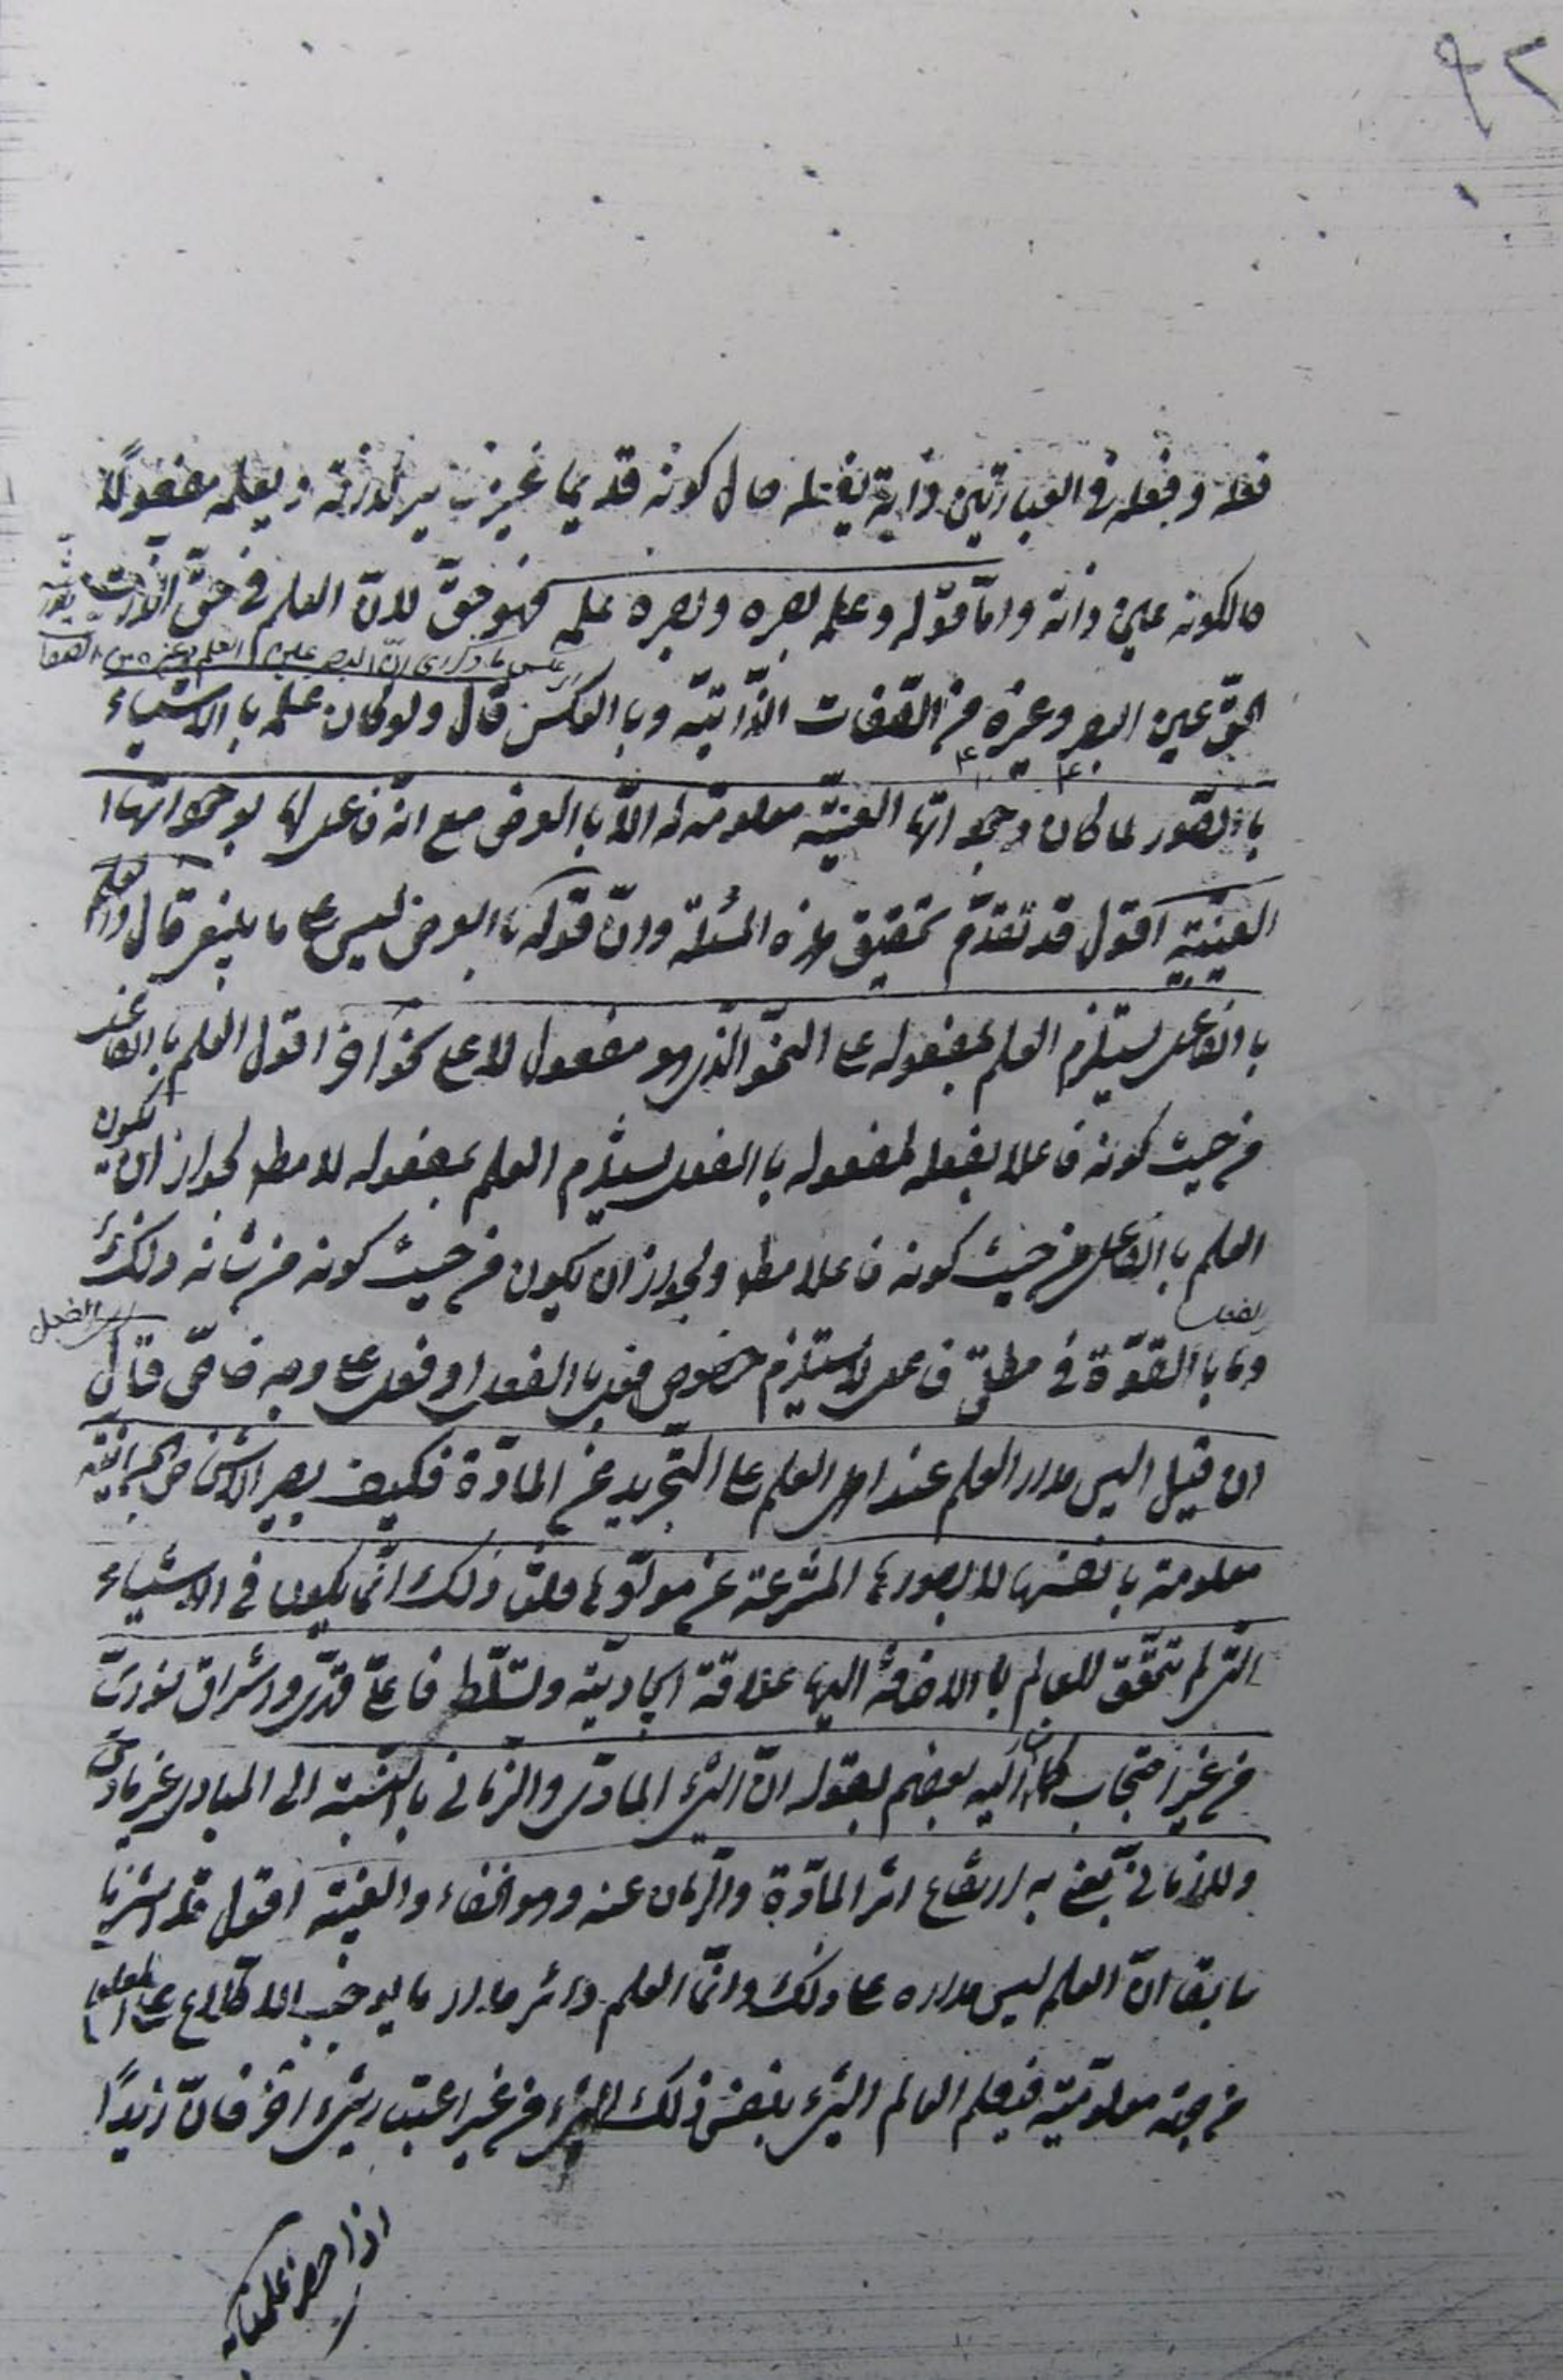 ٩٢
فعله وفعله في العبارتين ذاته يفعله حال كونه قديما غير
حالكونه عين ذاته وامّا قوله وعلمه بصره وبصره علمه فهو حقّ لانّ العلم في حقّ
عكس ما ذكر اى انّ البصر عين العلم وغيره من الصفا
الحقّ عين البصر وغيره من الصّفات الذّاتيّة وبالعكس قال ولو كان علمه بالاشياء
بالصّور لما كان وجوداتها العينيّة معلومة له الّا بالعرض مع انّه فاعل لها بوجوداتها
العينيّة اقول قد تقدّم تحقيق هذه المسئلة وانّ قوله بالعرض ليس على ما ينبغي قال والعلم
بالفاعل يستلزم العلم بمفعوله على النحو الّذى هو مفعول لا على نحو آخر اقول العلم بالفاعل
من حيث كونه فاعلا بفعله لمفعوله بالفعل يستلزم العلم بمفعوله لا مط لجواز ان يكون
العلم بالفاعل من حيث كونه فاعلا مط ولجواز ان يكون من حيث كونه من شانه ذلك
بالفعل
وما بالقوّة في مطلق فاعل لا يستلزم خصوص فعل بالفعل او فعل على وجه خاصّ قال
ان قيل اليس مدار العلم عند اهل العلم على التّجريد عن المادّة فكيف يصير الاشخاص الجسمانيّة
معلومة بانفسها لا بصورها المنتزعة عن موادّها قلنا ذلك انّما يكون في الاشياء
التى لم تتحقّق للعالم بالاضافة اليها علاقة ايجاديّة وتسلّط فاعلىّ قدّى واشراق نورىّ
من غير احتجاب كما اليه بعضهم بقوله انّ الشىء المادّى والزّمانى بالنّسبة الى المبادى غير مادّى
ولا زمانىّ يعنى به ارتفاع اثر المادّة والزّمان عنه وهو الخفاء والغيبة اقول قد اشرنا
سابقا انّ العلم ليس مداره على ذلك وانّما العلم دائر مدار ما يوجب الاطّلاع على المعلوم
من جهة معلوميّته فيعلم العالم الشىء بنفس ذلك الشىء من غير اعتبار شىء آخر فانّ زيدًا
اذا حصر علمناه